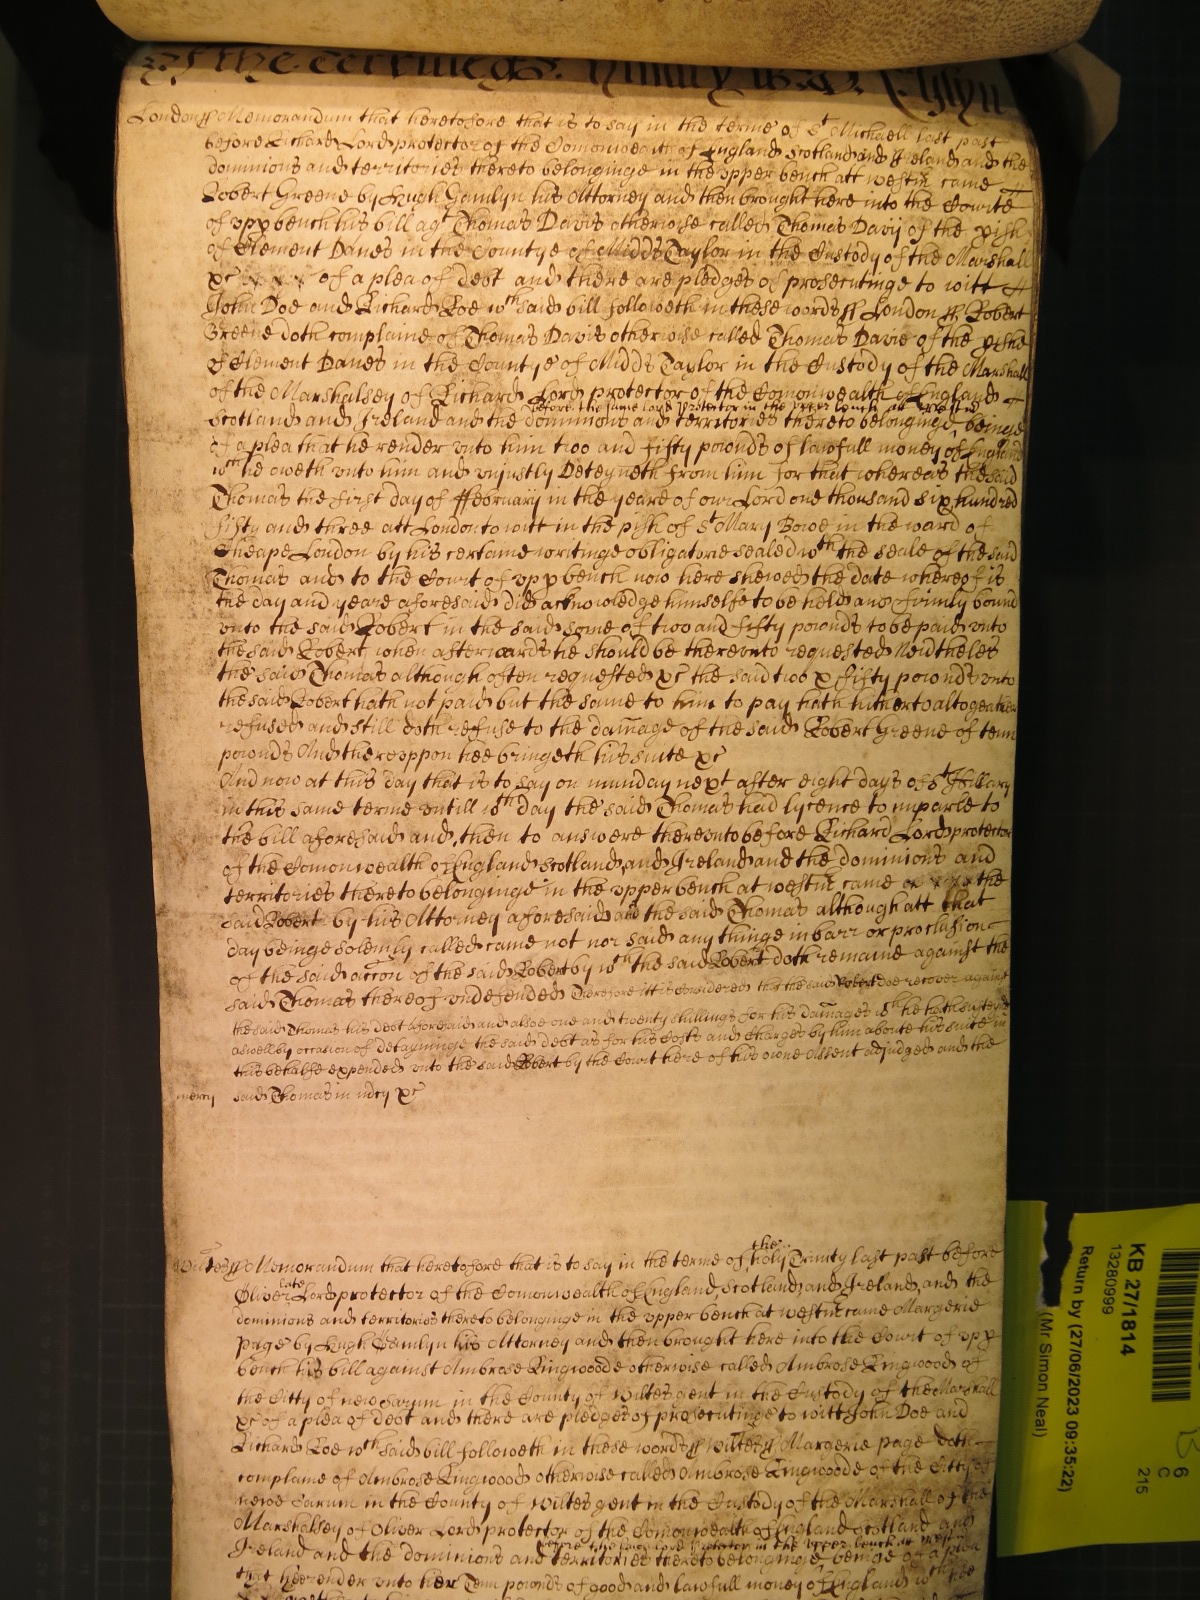 London ss Memorandum that heretofore that is to say in the terme of St Michaell last past
before Richard Lord protector of the Comonwealth of England Scotland and Ireland and the
dominions and territories thereto belonginge in the upper bench att westm came
Robert Greene by Hugh Hamlyn his Attorney and then brought here into the Courte
of upp bench his bill agt Thomas Davis otherwise called Thomas Davis of the pish
of Clement Danes in the Countye of Midds Taylor in the Custody of the Marshall
&c of a plea of debt and there are pledges of prosecutinge to witt
John Doe and Richard Roe wch said bill followeth in these words ss London ss Robert
Greene doth complaine of Thomas Davis otherwise called Thomas Davis of the pishe
of Clement Danes in the Countye of Midds Taylor in the Custody of the Marshall
of the Marshalsey of Richard Lord protector of the Comonwealth of England
before the same Lord Protector in the upper bench att westm
Scotland and Ireland and the dominions and territories thereto belonginge beinge
of a plea that he render unto him two and fifty pounds of lawfull money of England
wch he oweth unto him and unjustly Deteyneth from him for that whereas the said
Thomas the first day of ffebruary in the yeare of our Lord one thousand six hundred
fifty and three att London to witt in the pish of St Mary Bowe in the ward of
Cheape London by his certaine writinge obligatorie sealed wth the seale of the said
Thomas and to the Court of upp bench now here shewed the date whereof is
the day and yeare aforesaid did acknowledge himselfe to be held and firmly bound
unto the said Robert in the said some of two and fifty pounds to be paid unto
the said Robert when afterwards he should be thereunto requested Neidtheles
the said Thomas although often requested &c the said two & fifty pounds unto
the said Robert hath not paid but the same to him to pay hath hitherto altogeather
refused and still doth refuse to the damage of the said Robert Greene of tenn
pounds And thereuppon hee bringeth his suite &c
And now at this day that is to say on munday next after eight days of St Hillary
in this same terme untill wch day the said Thomas had lycence to imparle to
the bill aforesaid and then to answere thereunto before Richard Lord protector
of the Comonwealth of England Scotland and Ireland and the dominions and
territories thereto belonginge in the upper bench at westm came the
said Robert by his Attorney aforesaid and the said Thomas although att that
day beinge solemly called came not nor said any thinge in barr or preclusion
of the said accon of the said Robert by wch the said Robert doth remaine against the
said Thomas thereof undefended Therefore itt is Considered that the said Robert doe recover against
the said Thomas his debt aforesaid and alsoe one and twenty shillings for his damages wch he hath susteyned
aswell by occasion of deteyninge the said debt as for his Costs and Charges by him aboute his suite in
this behalfe expended unto the said Robert by the Court here of his owne Assent adjudged and the
mercy said Thomas in mercy &c
the
Wiltes ss Memorandum that heretofore that is to say in the terme of holy Trinity last past before
late
Oliver Lord protector of the Comonwealth of England, Scotland and Ireland, and the
dominions and territories thereto belonginge in the upper bench at westm came Margerie
Page by Hugh Hamlyn his Attorney and then brought here into the Court of upp
bench his bill against Ambrose Ringwoode otherwise called Ambrose Ringwood of
the Citty of new Sarum in the County of Wiltes gent in the Custody of the Marshall
&c of a plea of debt and there are pledges of prosecutinge to witt John Doe and
Richard Roe wch said bill followeth in these words ss wiltes ss Margerie Page doth
complaine of Ambrose Ringwood otherwise called Ambrose Ringwoode of the Citty of
newe Sarum in the County of wiltes gent in the Custody of the Marshall of the
Marshalsey of Oliver Lord protector of the Comonwealth of England Scotland and
before the same Lord Protector in the upper bench at westm
Ireland and the dominions and territories thereto belonginge beinge of a plea
that hee render unto her Tenn pounds of good and lawfull money of England wch hee
KB 27/1814
13280999
Return by (27/06/2023 09:35:22)
(Mr Simon Neal)
6
C
215